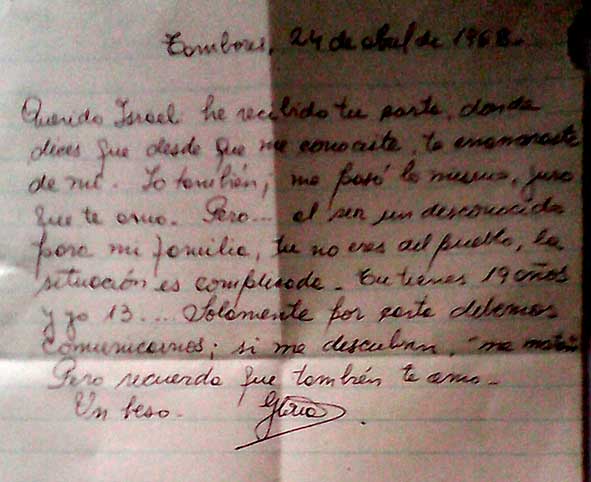 Tambores, 24 de abril de 1968.-
Querido Israel: he recibido tu carta, donde
dices que desde que me conociste, te enamoraste
de mi. Yo también, me pasó lo mismo, juro
que te amo. Pero... al ser un desconocido
para mi familia, tu no eres del pueblo, la
situación es complicada. Tu tienes 19 años
y yo 13.... Solamente por carta debemos
comunicarnos; si me descubren, me matan
Pero recuerda que también te amo.-
Un beso. Gloria